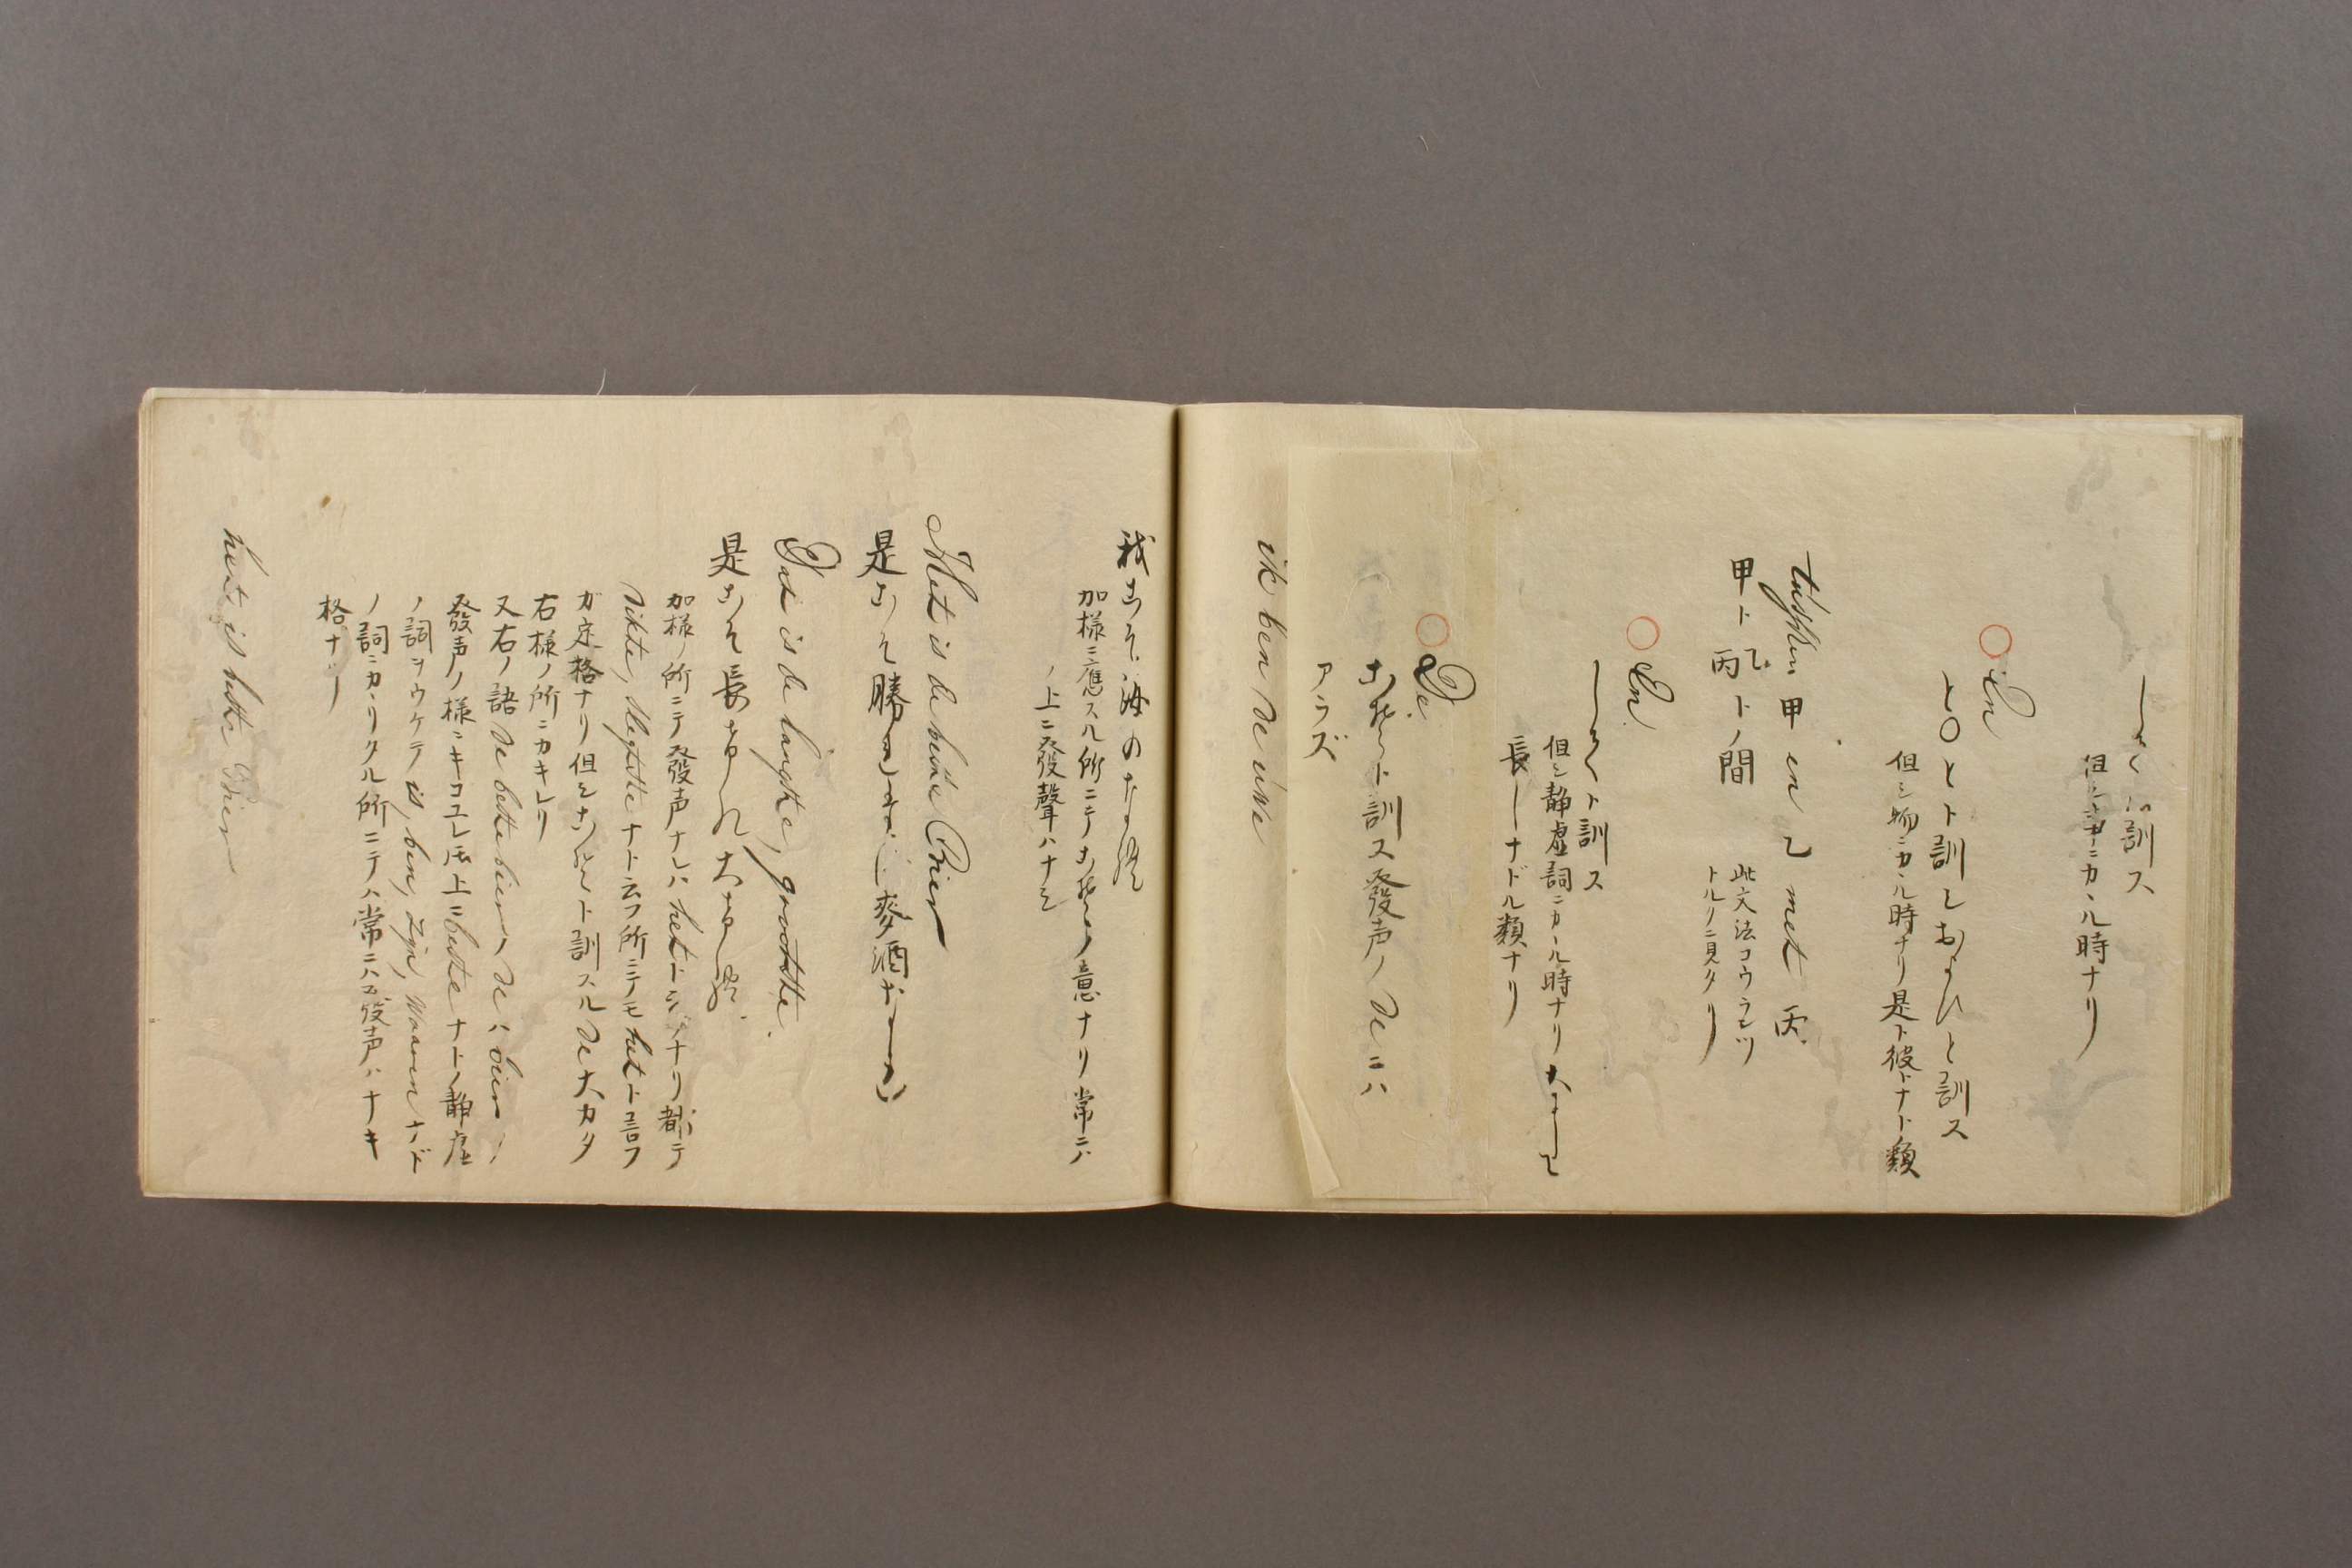 訓ス
但シ カヽル時ナリ
En
と〇とト訓しおよひと訓ス
但シ物ニカヽル時ナリ是ト彼トナト類
tusschen 甲 en 乙 met 丙
甲ト乙丙トノ間
此文法コウランツ
トルクニ見タリ
En
してト訓ス
但シ静虚詞ニカヽル時ナリ大にして
長しナドル類ナリ
De
こそト訓ス發声ノ de ニハ
アラズ
ik ben de uwe
我こそ汝のなれ
加様ニ應スル所ニテこそノ意ナリ常ニハ
ノ上ニ發聲ハナシ
Het is de beste Bier
是こそ勝れ 麥酒なり
Dat is de langste, grootste
是こそ長けれ大
加様ノ所ニテ發声ナレハ het ト ナリ都テ
dikte, ナト云フ所ニテモ het ト言フ
ガ定格ナリ但シこそト訓スル de 大カタ
右様ノ所ニカキレリ
又右ノ語 de beste bier ノ de ハ bier ノ
發声ノ様ニキコユレ𪜈上ニ beste ナトノ静虚
ノ詞ヲウケテ is, ben, zijn, waaren ナド
ノ詞ニカヽリタル所ニテハ常ニハ發声ハナキ
格ナリ
het is beste Bier